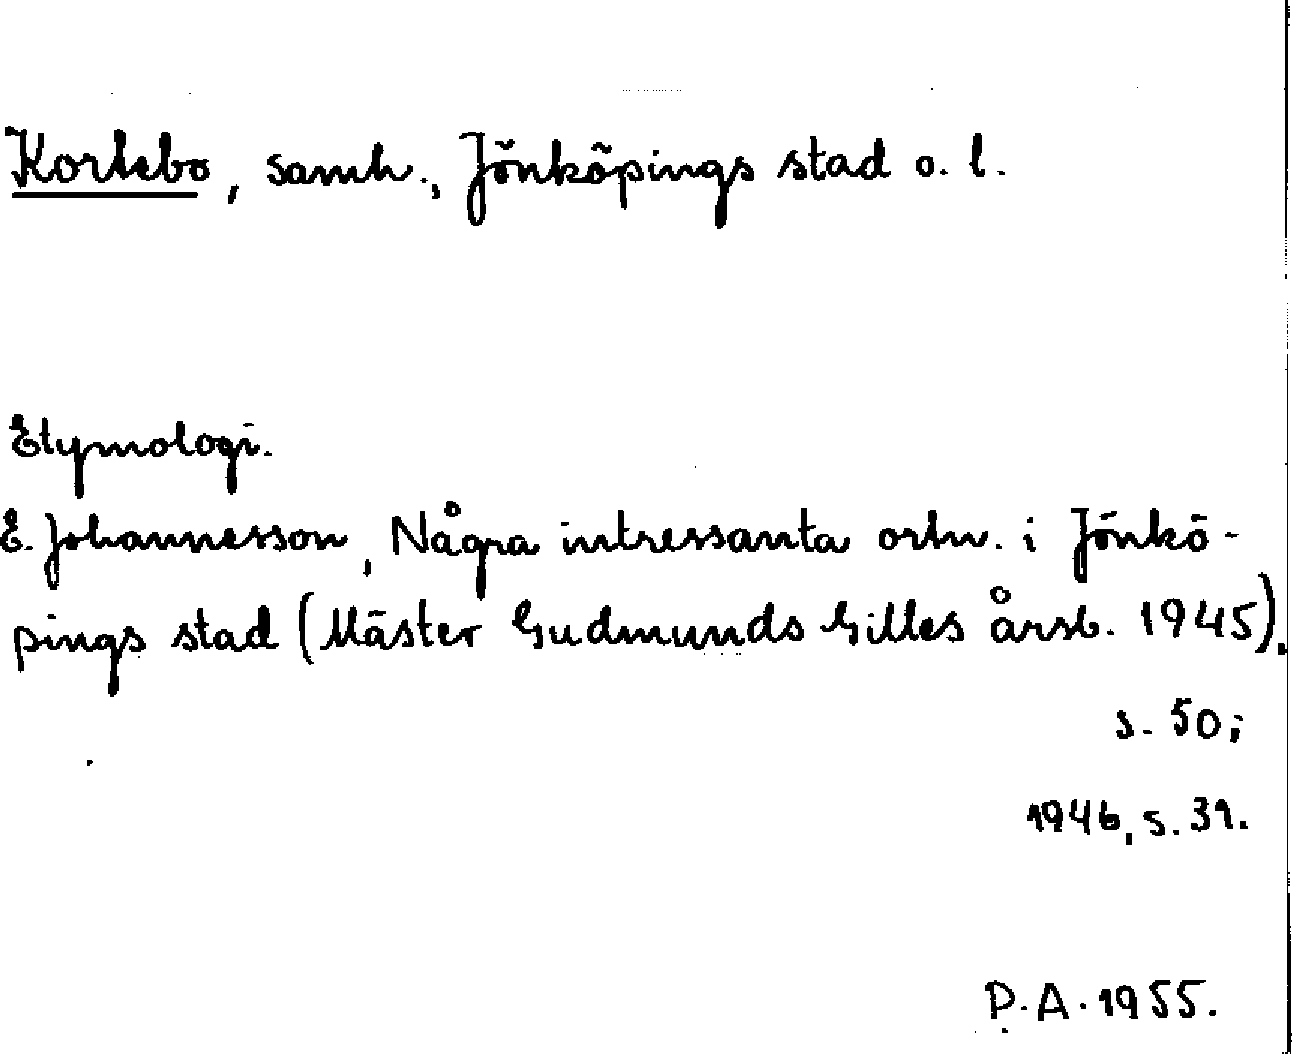 Kortebo, samh., Jönköpings stad o. l.
Etymologi.
E. Johannesson, Några intressanta ortn. i Jönkö-
pings stad (Mäster Gudmunds Gilles årsb. 1945),
s. 50;
1946, s. 31.
P.A. 1955.